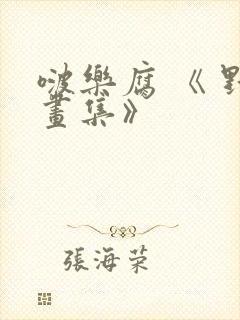 啵樂腐《野
畫集》
張海荣